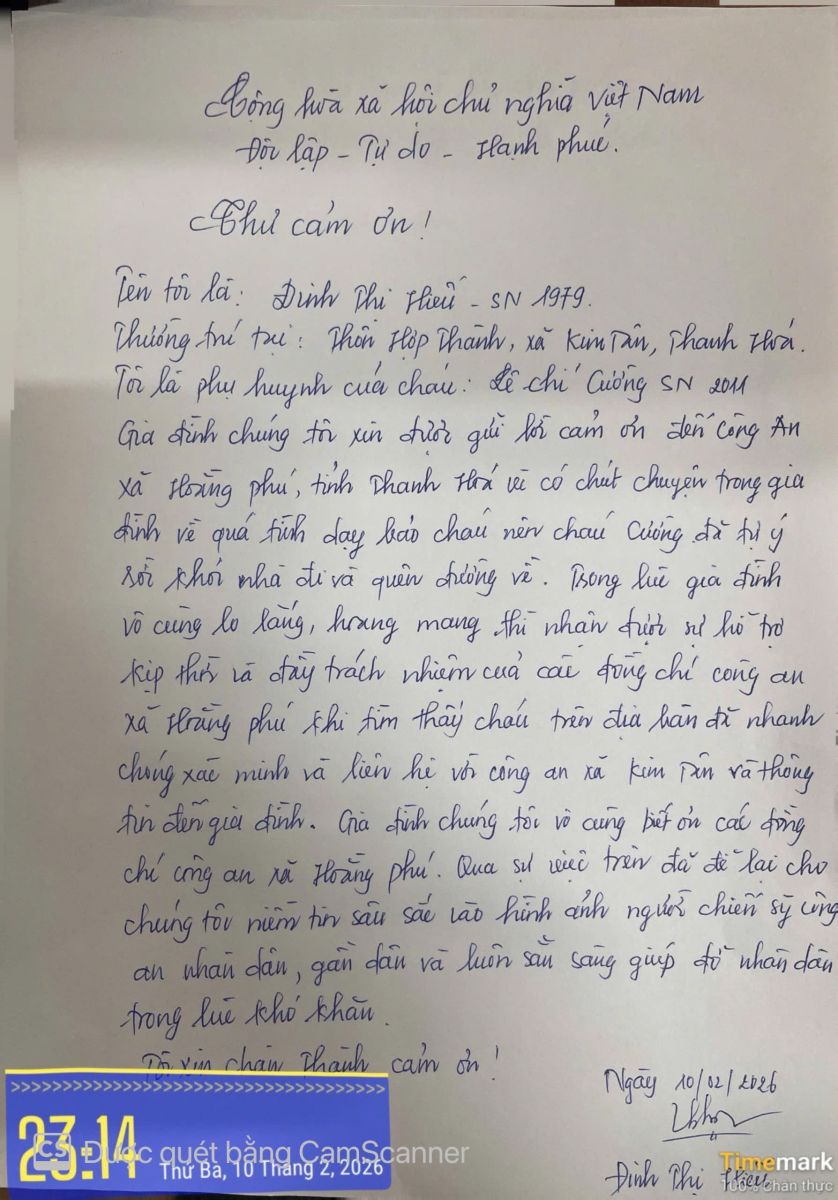 Cộng hòa xã hội chủ nghĩa Việt Nam
Độc lập - Tự do - Hạnh phúc.
Thư cảm ơn!
Tên tôi là: Đinh Thị Hiếu - SN 1979.
Thường trú tại: Thôn Hợp Thành, xã Kim Tân, Thanh Hoá.
Tôi là phụ huynh của cháu: Lê Chí Cường SN 2011
Gia đình chúng tôi xin được gửi lời cảm ơn đến Công An
xã Hoằng phú, tỉnh Thanh Hoá vì có chút chuyện trong gia
đình về quá trình dạy bảo cháu nên cháu Cường đã tự ý
rời khỏi nhà đi và quên đường về. Trong lúc gia đình
vô cùng lo lắng, hoang mang thì nhận được sự hỗ trợ
kịp thời và đầy trách nhiệm của các đồng chí công an
xã Hoằng phú khi tìm thấy cháu trên địa bàn đã nhanh
chóng xác minh và liên hệ với công an xã Kim Tân và thông
tin đến gia đình. Gia đình chúng tôi vô cùng biết ơn các đồng
chí công an xã Hoằng phú. Qua sự việc trên đã để lại cho
chúng tôi niềm tin sâu sắc vào hình ảnh người chiến sỹ công
an nhân dân, gần dân và luôn sẵn sàng giúp đỡ nhân dân
trong lúc khó khăn.
Tôi xin chân thành cảm ơn!
Ngày 10/02/2026
Đinh Thị Hiếu
23:14
Thứ Ba, 10 Tháng 2, 2026
CS Được quét bằng CamScanner
Timemark
100% Chân thực